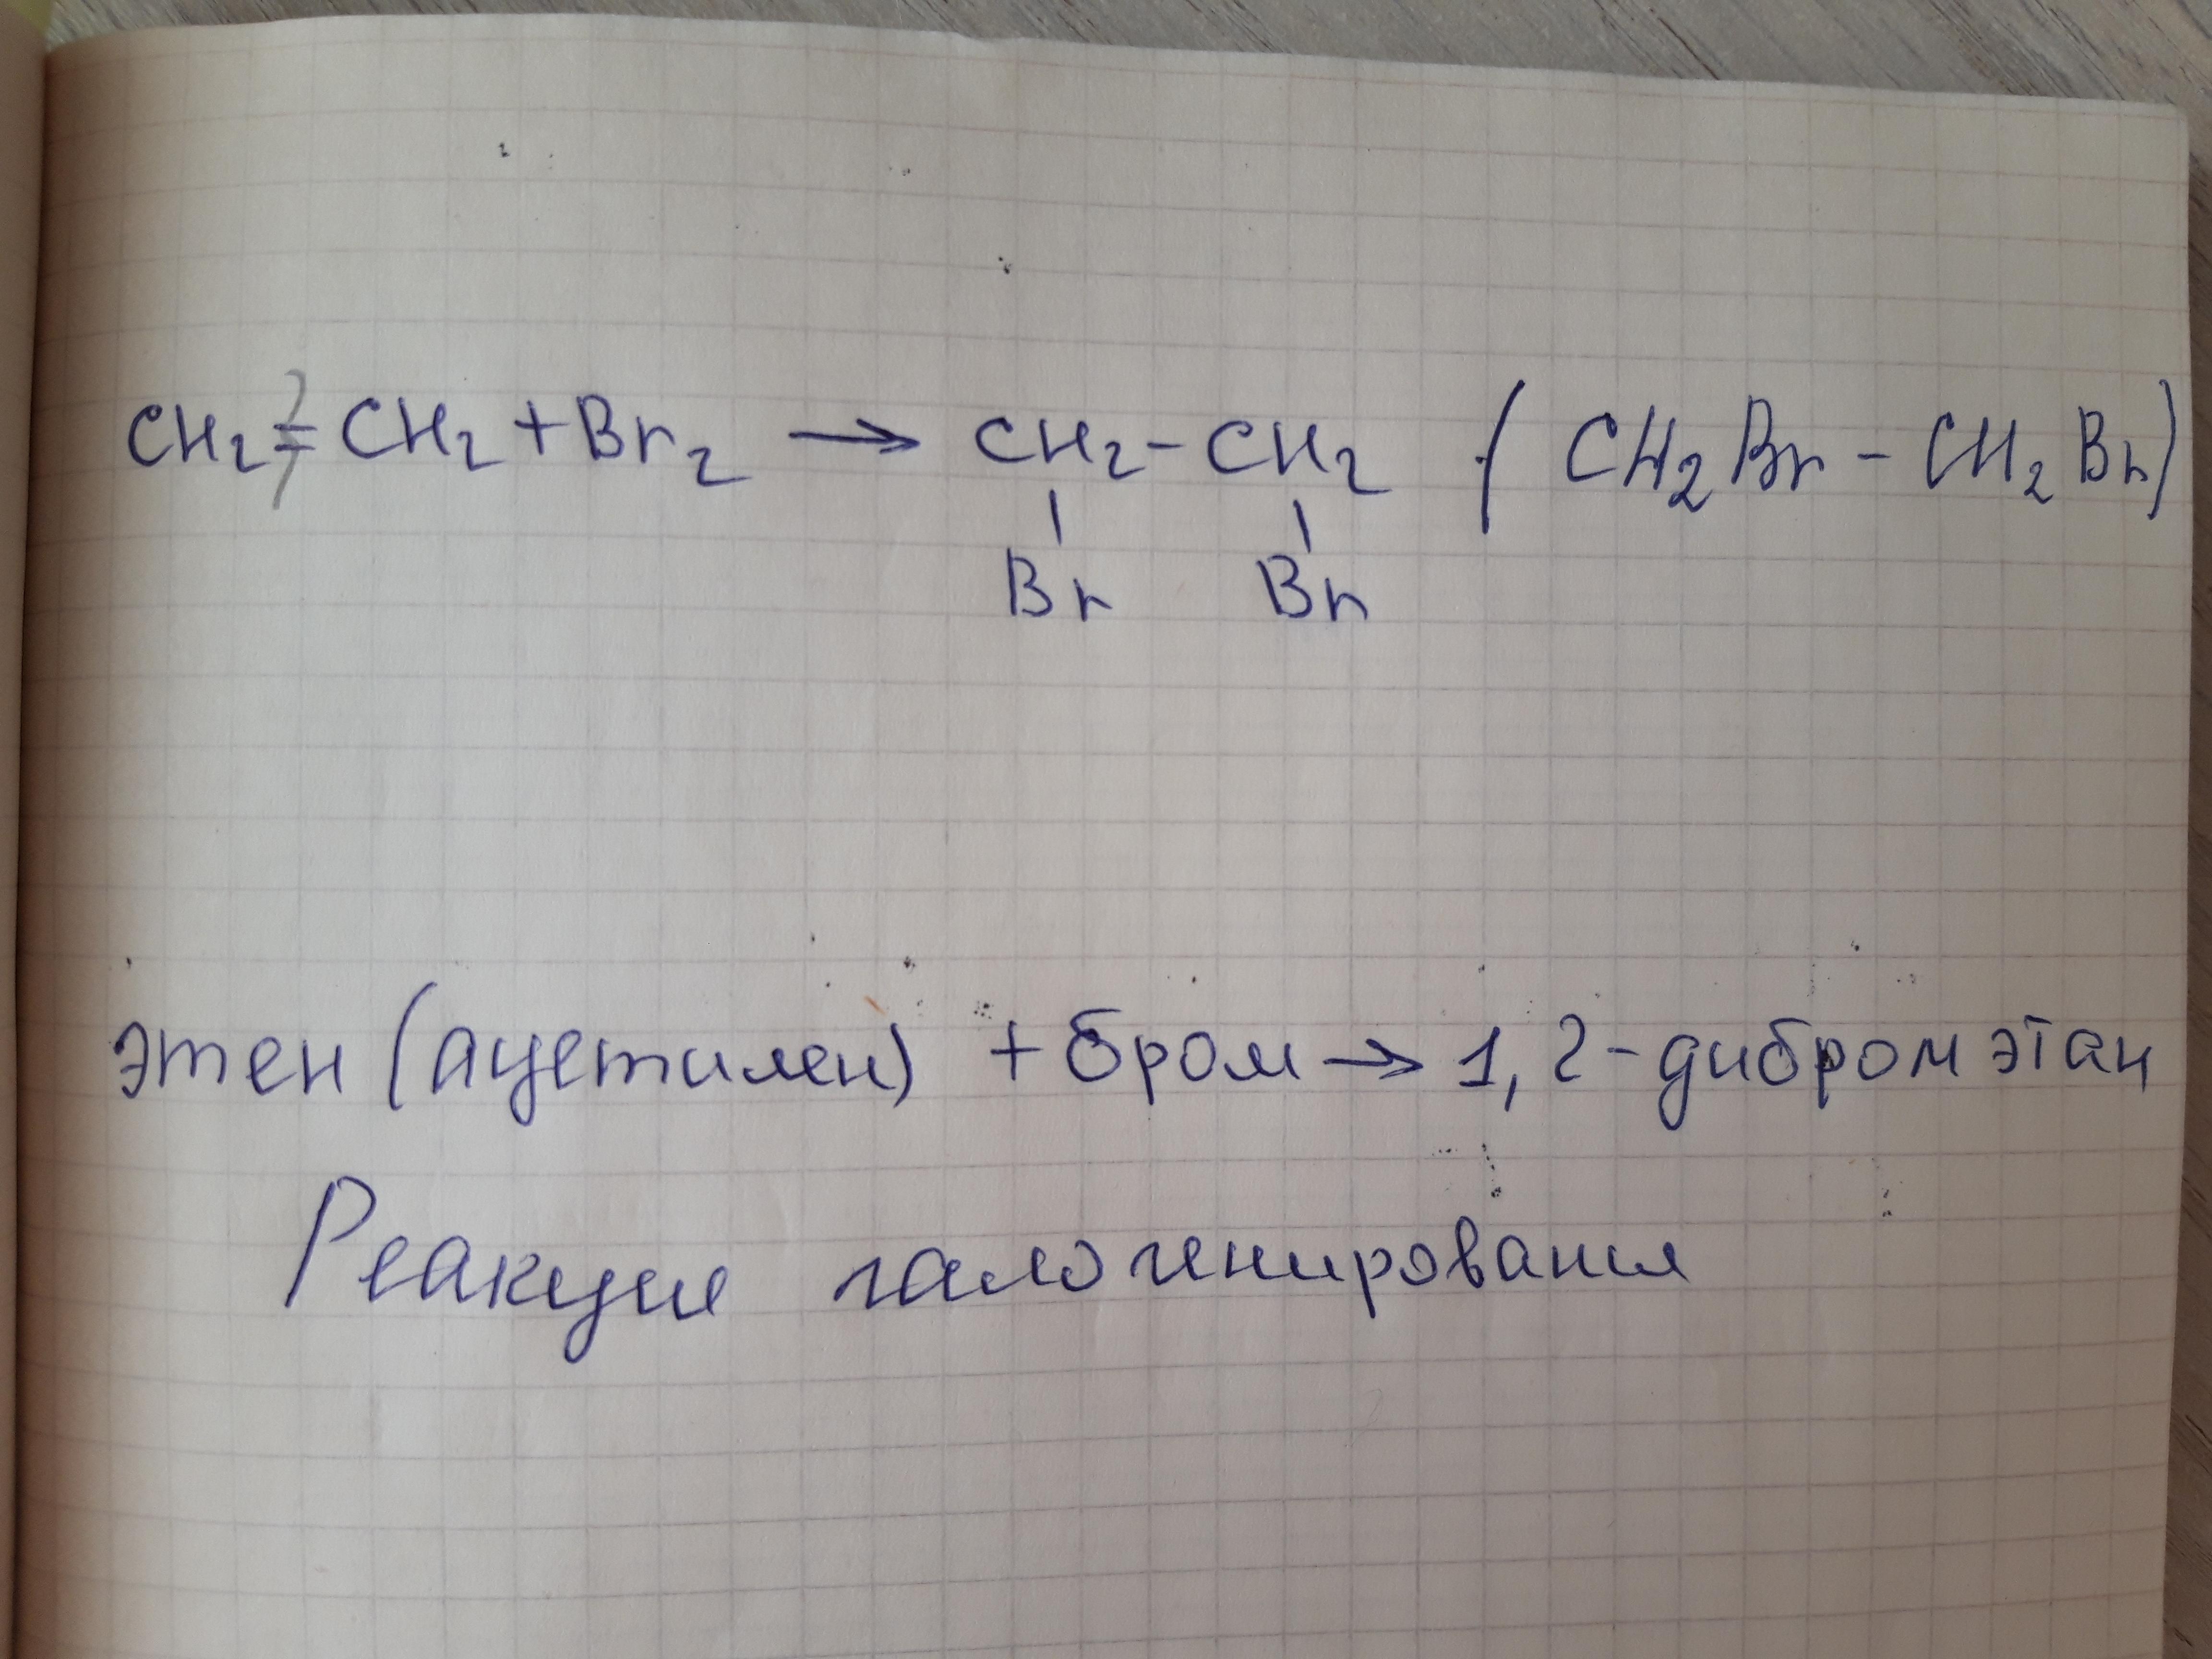 CH₂=CH₂+Br₂ → CH₂-CH₂ (CH₂Br-CH₂Br)
Br Br
этен (ацетилен) + бром → 1,2-дибромэтан
Реакция галогенирования